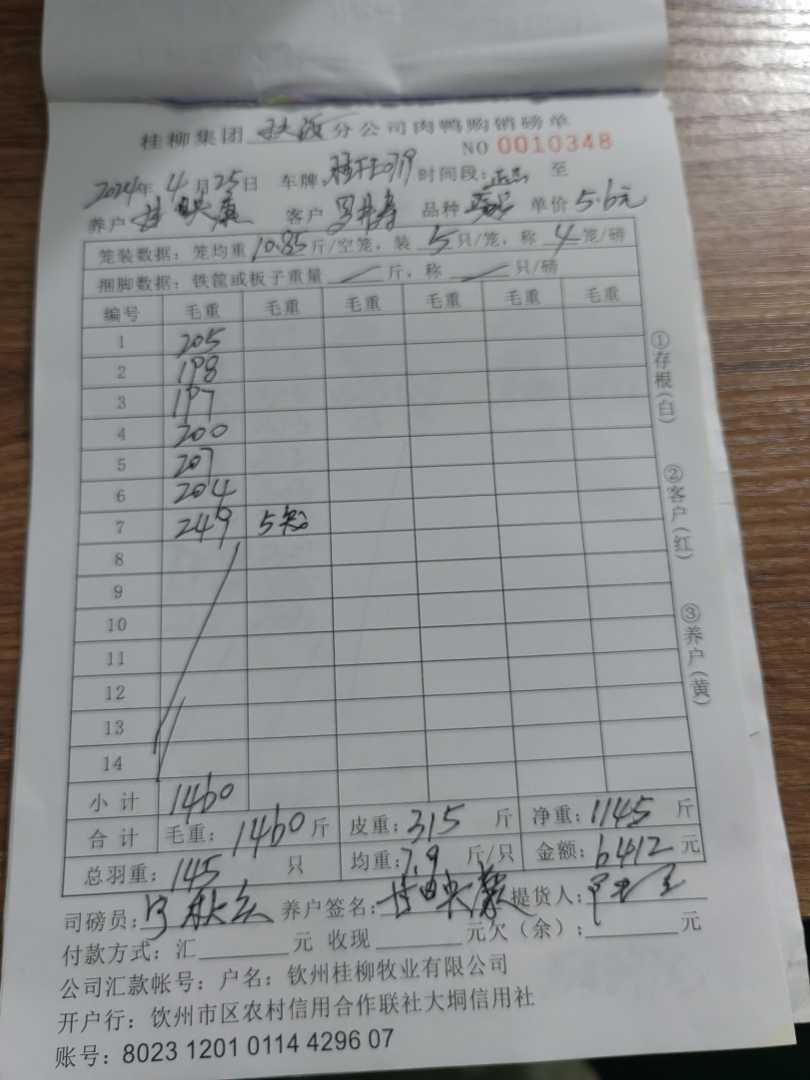 桂柳集团 分公司肉鸭购销磅单
NO 0010348
2024年 4月25日 车牌: 时间段: 至
养户 客户 品种 单价 5.6元
笼装数据: 笼均重 10.85 斤/空笼, 装 5 只/笼, 称 4 笼/磅
捆脚数据: 铁筐或板子重量 斤, 称 只/磅
编号 毛重 毛重 毛重 毛重 毛重 毛重
1 205
2 198
3 197
4 200
5 207
6 204
7 249 5笼
8
9
10
11
12
13
14
小计 1460
合计 毛重: 1460 斤 皮重: 315 斤 净重: 1145 斤
总羽重: 145 只 均重: 7.9 斤/只 金额: 6412 元
司磅员: 养户签名: 提货人:
付款方式: 汇 元 收现 元欠(余): 元
公司汇款帐号: 户名: 钦州桂柳牧业有限公司
开户行: 饮州市区农村信用合作联社大垌信用社
账号: 8023 1201 0114 4296 07
①存根(白)
②客户(红)
③养户(黄)